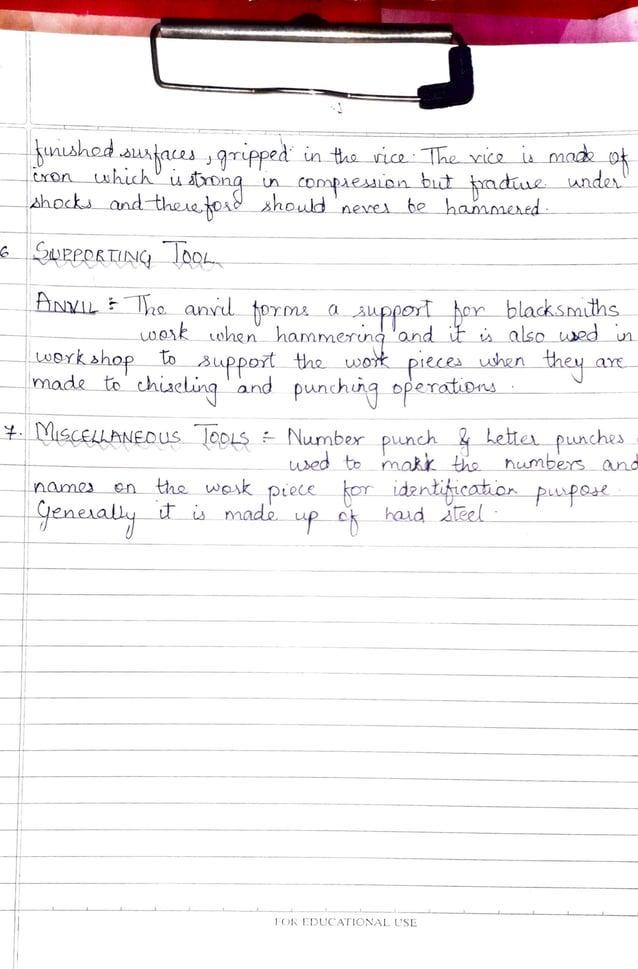 finished surfaces, gripped in the vice. The vice is made of
iron which is strong in compression but fracture under
shocks and therefore should never be hammered.
6 SUPPORTING TOOL
ANVIL :- The anvil forms a support for blacksmiths
work when hammering and it is also used in
workshop to support the work pieces when they are
made to chiseling and punching operations.
7. MISCELLANEOUS TOOLS :- Number punch & Letter punches
used to mark the numbers and
names on the work piece for identification purpose.
Generally it is made up of hard steel.
FOR EDUCATIONAL USE